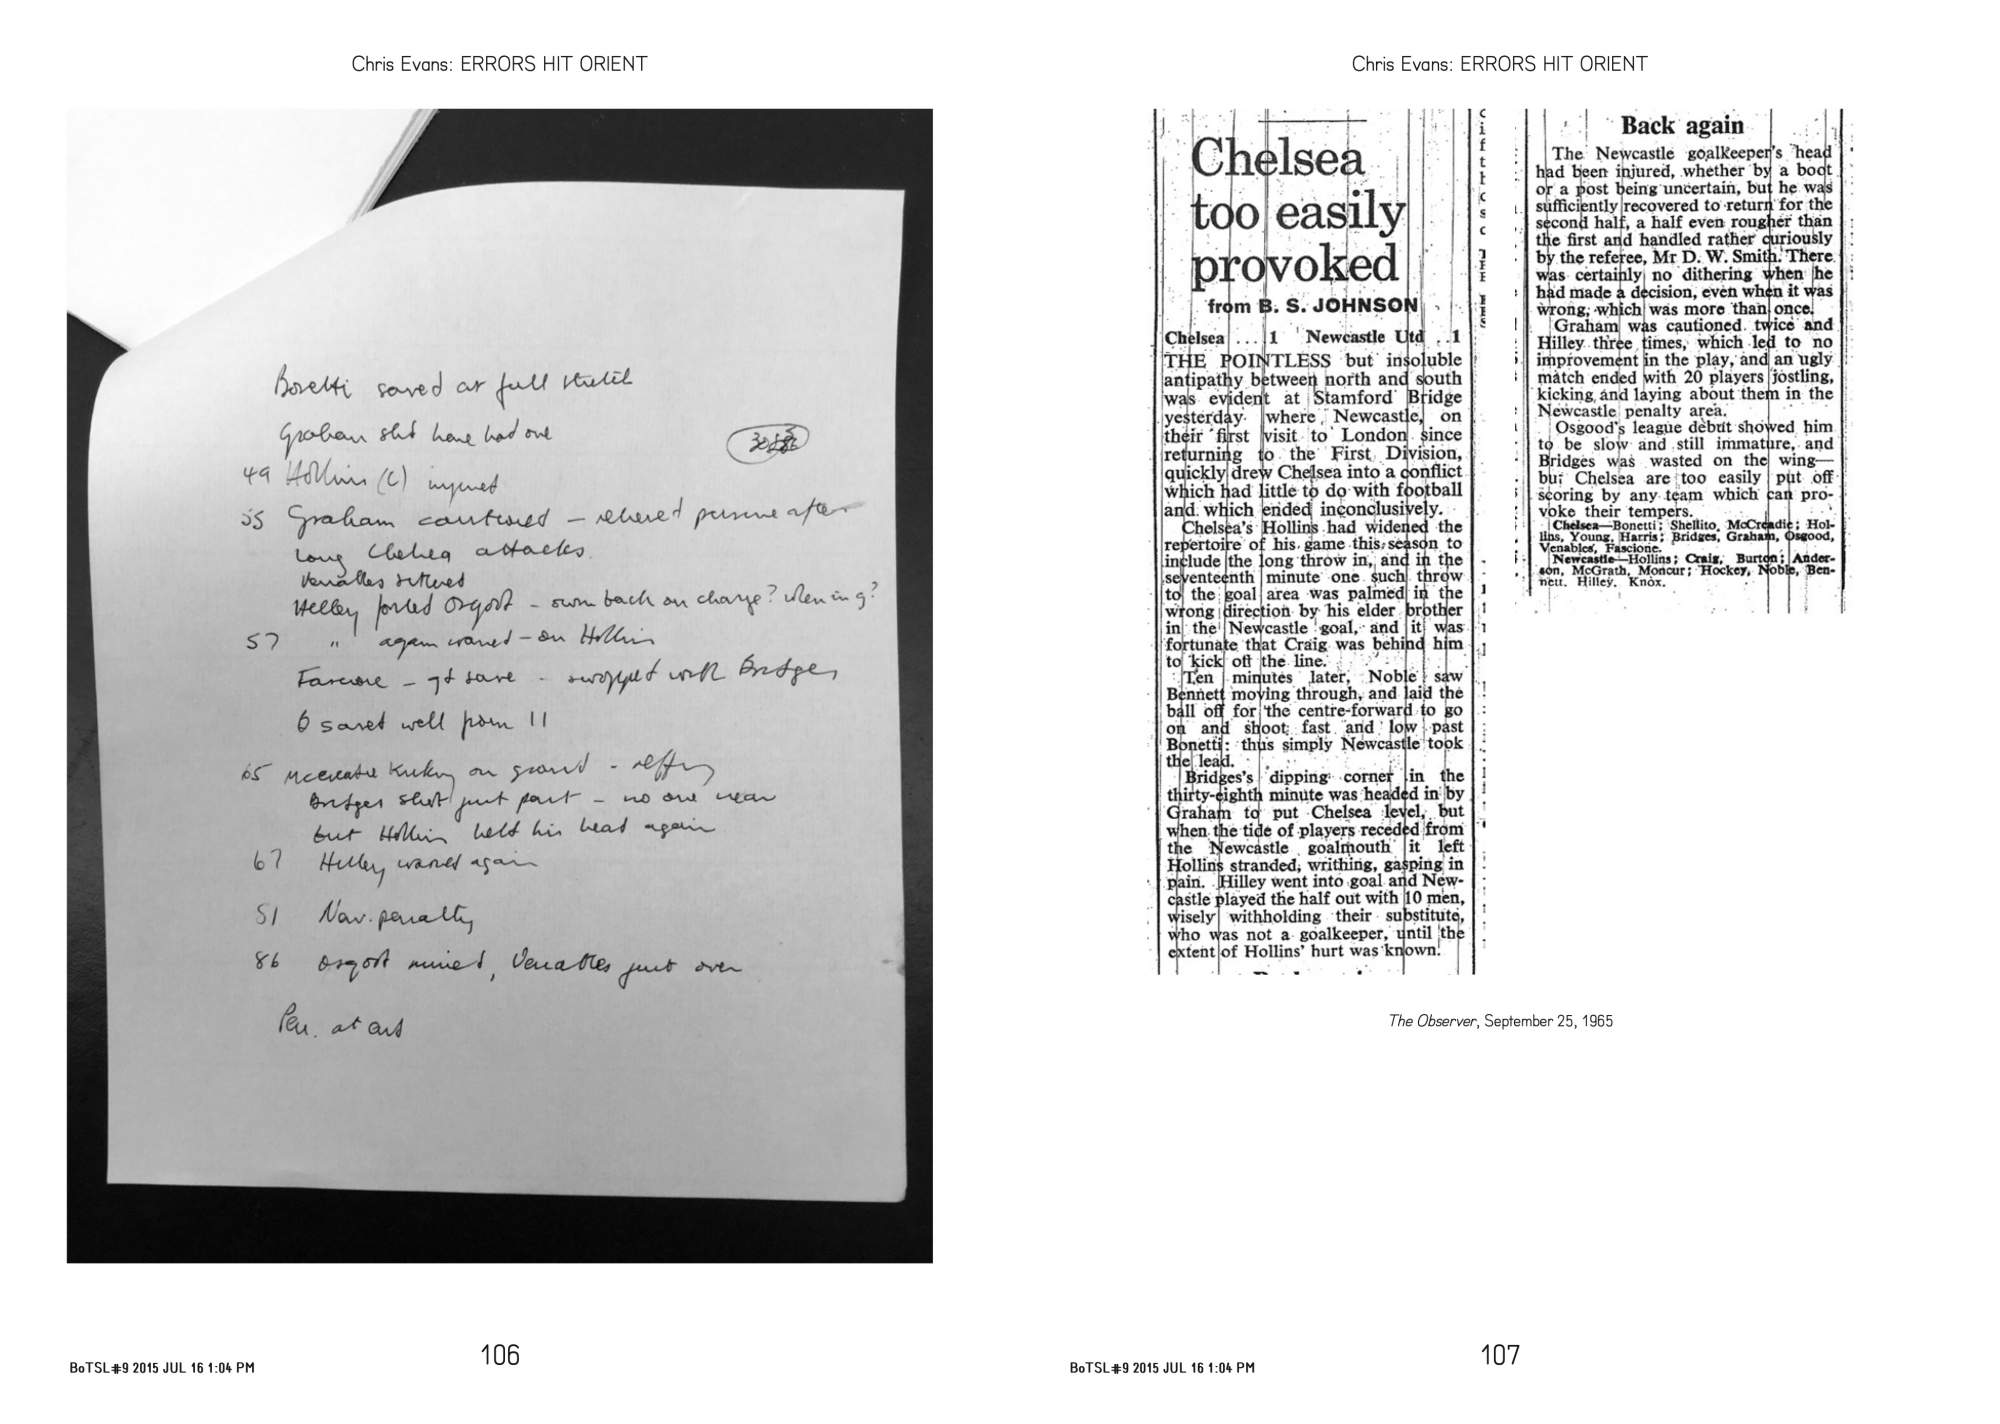 Chris Evans: ERRORS HIT ORIENT
Bonetti saved at full stretch
Graham shd have had one
49 Hollins (C) injured
55 Graham cautioned – after
long Chelsea attacks
Venables
Hilley fouled Osgood – own back on charge? when in g?
57 " again warned – on Hollins
Fascione – gd save – swopped with Bridges
6 saved well from 11
65 McCreadie kicking on ground –
Bridges shot just past – no one near
but Hollins held his head again
67 Hilley warned again
81 Nav. penalty
86 Osgood missed, Venables just over
Pen. at end
106
BoTSL#9 2015 JUL 16 1:04 PM
Chris Evans: ERRORS HIT ORIENT
Chelsea
too easily
provoked
from B. S. JOHNSON
Chelsea ... 1 Newcastle Utd ..1
THE POINTLESS but insoluble
antipathy between north and south
was evident at Stamford Bridge
yesterday where Newcastle, on
their first visit to London since
returning to the First Division,
quickly drew Chelsea into a conflict
which had little to do with football
and which ended inconclusively.
Chelsea's Hollins had widened the
repertoire of his game this season to
include the long throw in, and in the
seventeenth minute one such throw
to the goal area was palmed in the
wrong direction by his elder brother
in the Newcastle goal, and it was
fortunate that Craig was behind him
to kick off the line.
Ten minutes later, Noble saw
Bennett moving through, and laid the
ball off for the centre-forward to go
on and shoot fast and low past
Bonetti: thus simply Newcastle took
the lead.
Bridges's dipping corner in the
thirty-eighth minute was headed in by
Graham to put Chelsea level, but
when the tide of players receded from
the Newcastle goalmouth it left
Hollins stranded, writhing, gasping in
pain. Hilley went into goal and New-
castle played the half out with 10 men,
wisely withholding their substitute,
who was not a goalkeeper, until the
extent of Hollins' hurt was known.
Back again
The Newcastle goalkeeper's head
had been injured, whether by a boot
or a post being uncertain, but he was
sufficiently recovered to return for the
second half, a half even rougher than
the first and handled rather curiously
by the referee, Mr D. W. Smith. There
was certainly no dithering when he
had made a decision, even when it was
wrong, which was more than once.
Graham was cautioned twice and
Hilley three times, which led to no
improvement in the play, and an ugly
match ended with 20 players jostling,
kicking and laying about them in the
Newcastle penalty area.
Osgood's league debut showed him
to be slow and still immature, and
Bridges was wasted on the wing—
but Chelsea are too easily put off
scoring by any team which can pro-
voke their tempers.
Chelsea—Bonetti; Shellito, McCreadie; Hol-
lins, Young, Harris; Bridges, Graham, Osgood,
Venables, Fascione.
Newcastle—Hollins; Craig, Burton; Ander-
son, McGrath, Moncur; Hockey, Noble, Ben-
nett, Hilley, Knox.
The Observer, September 25, 1965
107
BoTSL#9 2015 JUL 16 1:04 PM